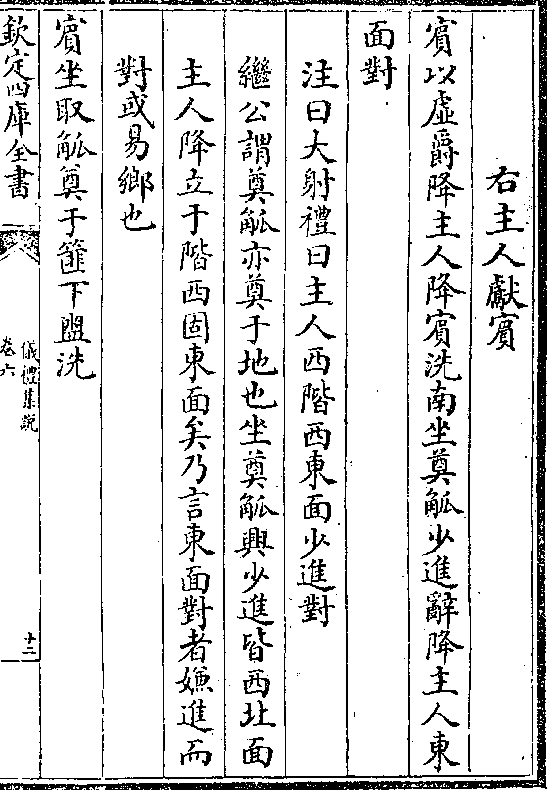 右主人獻賓
賓以虛爵降主人降賓洗南坐奠觚少進辭降主人東
面對
注曰大射禮曰主人西階西東面少進對
繼公謂奠觚亦奠于地也坐奠觚興少進皆西北面
主人降立于階西固東面矣乃言東面對者嫌進而
對或易鄉也
賓坐取觚奠于篚下盥洗
欽定四庫全書
儀禮集說
卷六
十二